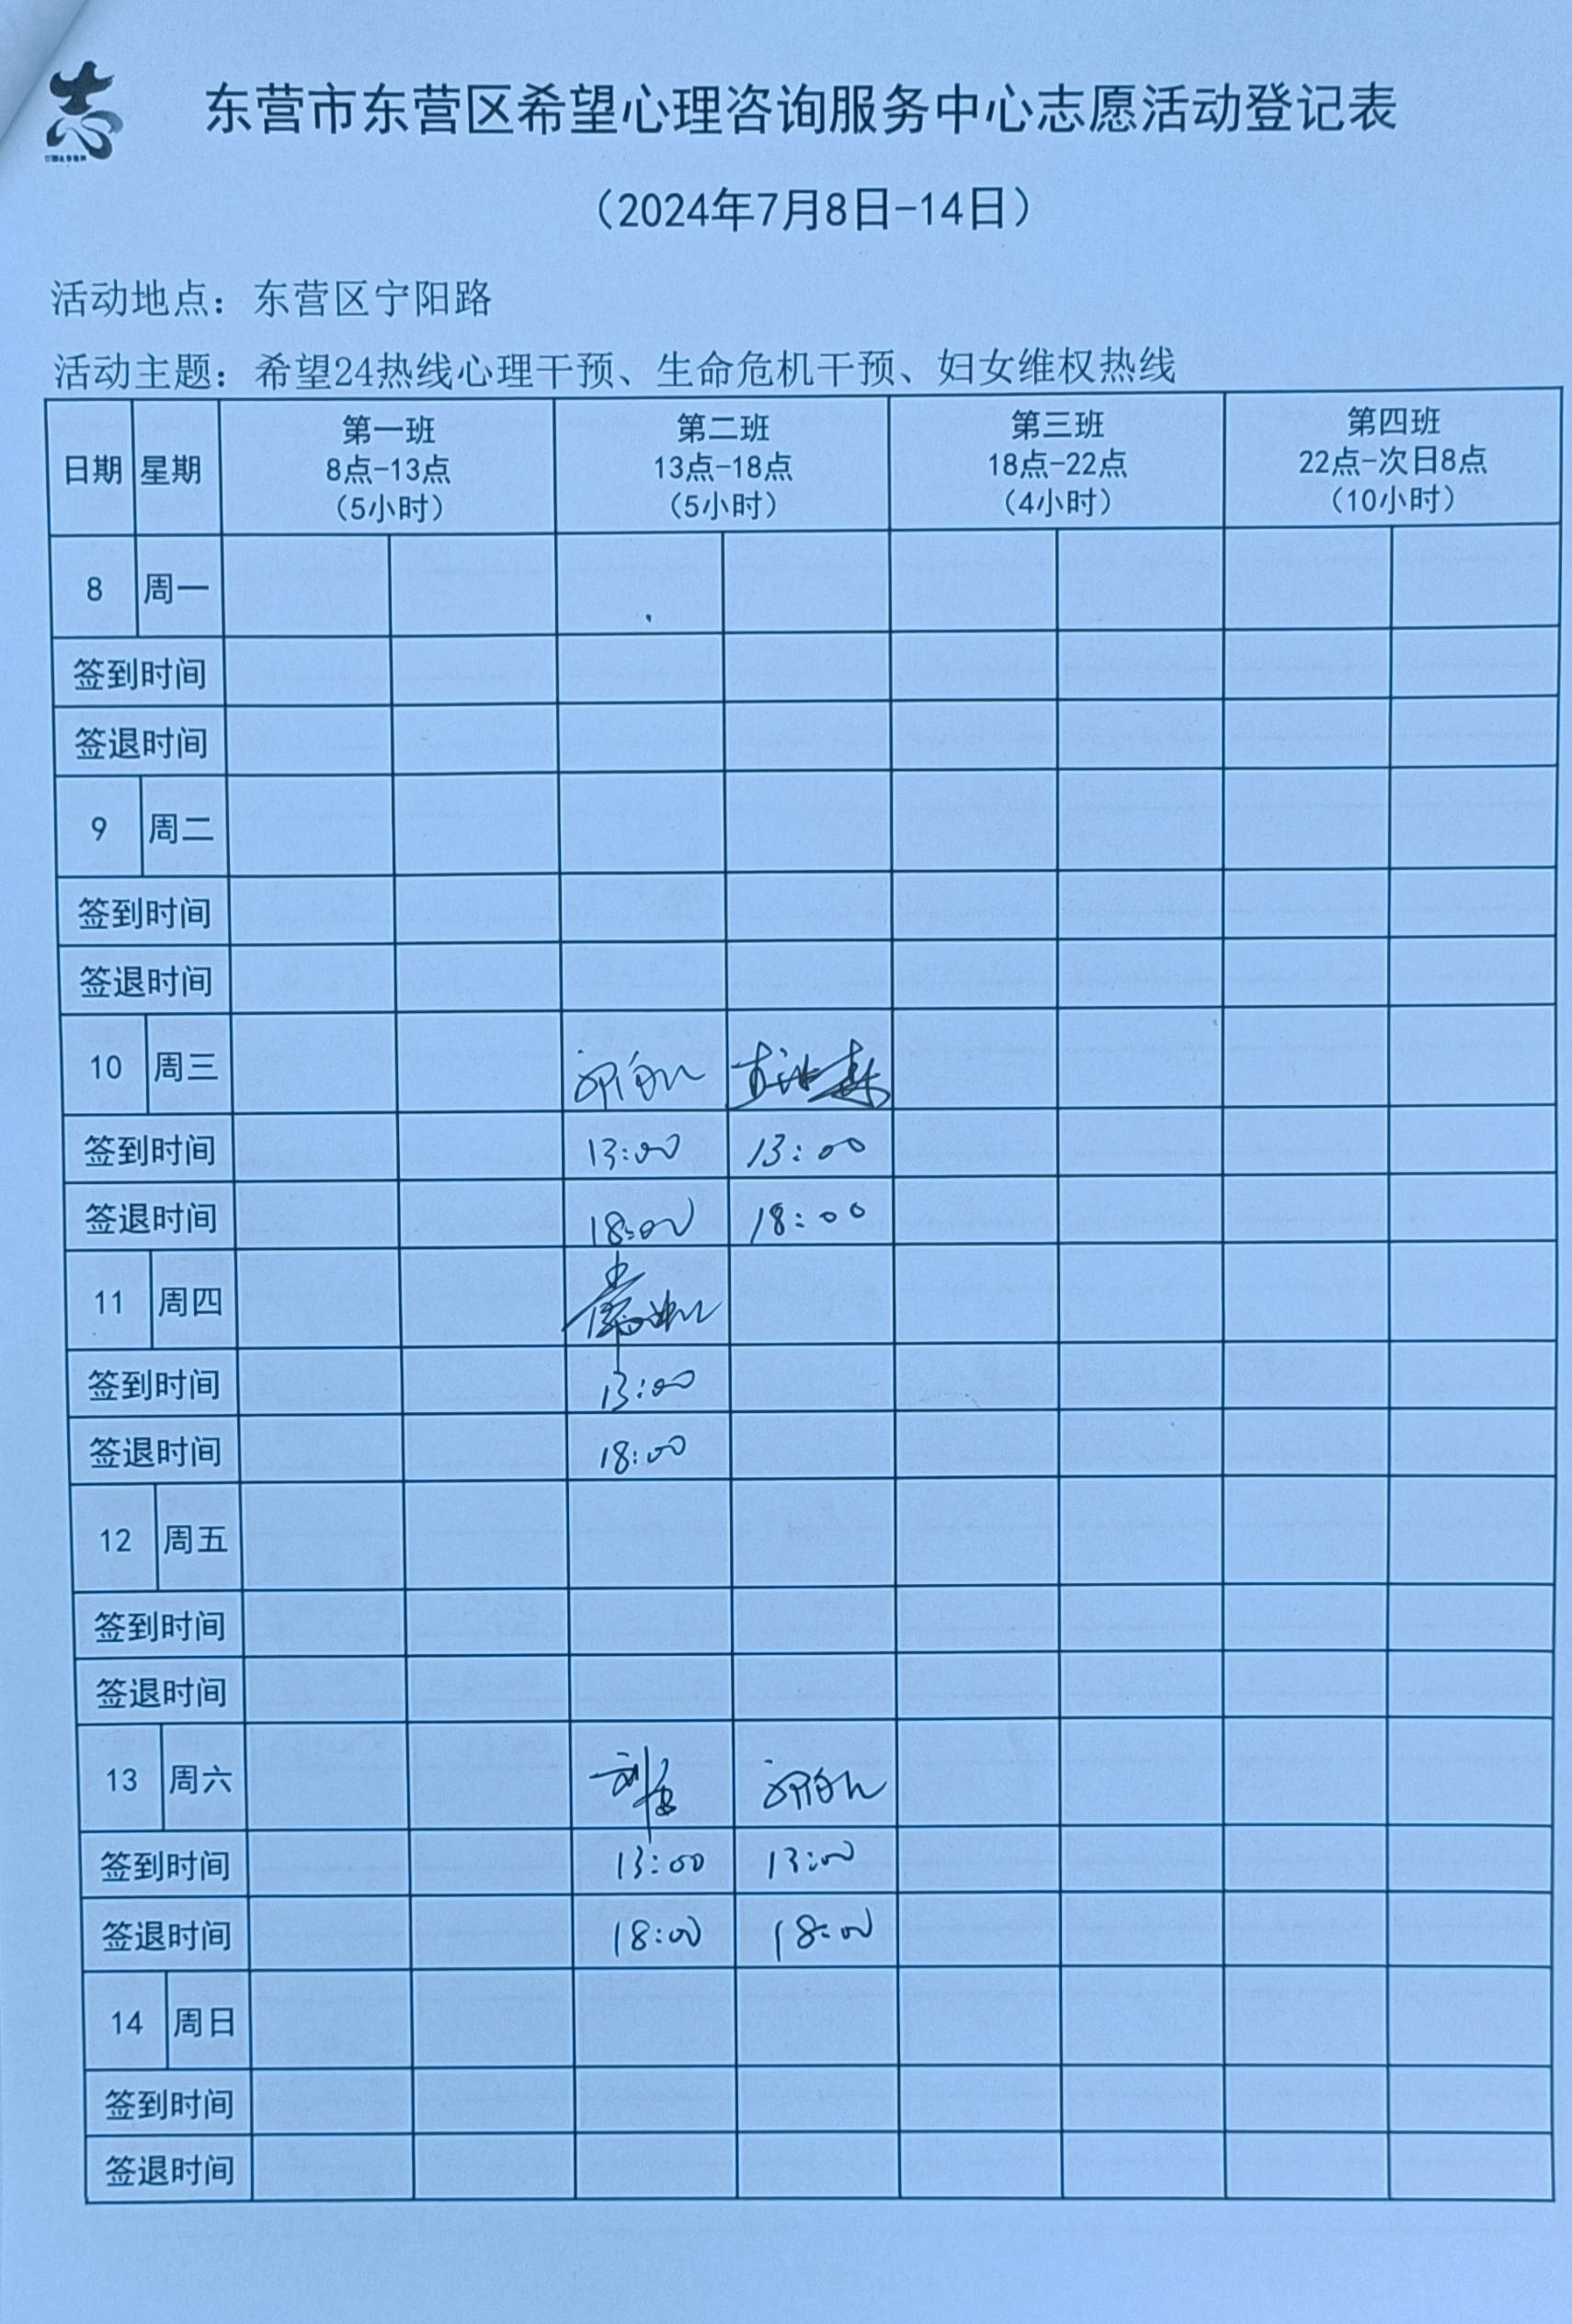 志
东营市东营区希望心理咨询服务中心志愿活动登记表
（2024年7月8日-14日）
活动地点：东营区宁阳路
活动主题：希望24热线心理干预、生命危机干预、妇女维权热线
日期 星期 第一班 8点-13点 （5小时） 第二班 13点-18点 （5小时） 第三班 18点-22点 （4小时） 第四班 22点-次日8点 （10小时）
8 周一
签到时间
签退时间
9 周二
签到时间
签退时间
10 周三
签到时间 13:00 13:00
签退时间 18:00 18:00
11 周四
签到时间 13:00
签退时间 18:00
12 周五
签到时间
签退时间
13 周六
签到时间 13:00 13:00
签退时间 18:00 18:00
14 周日
签到时间
签退时间